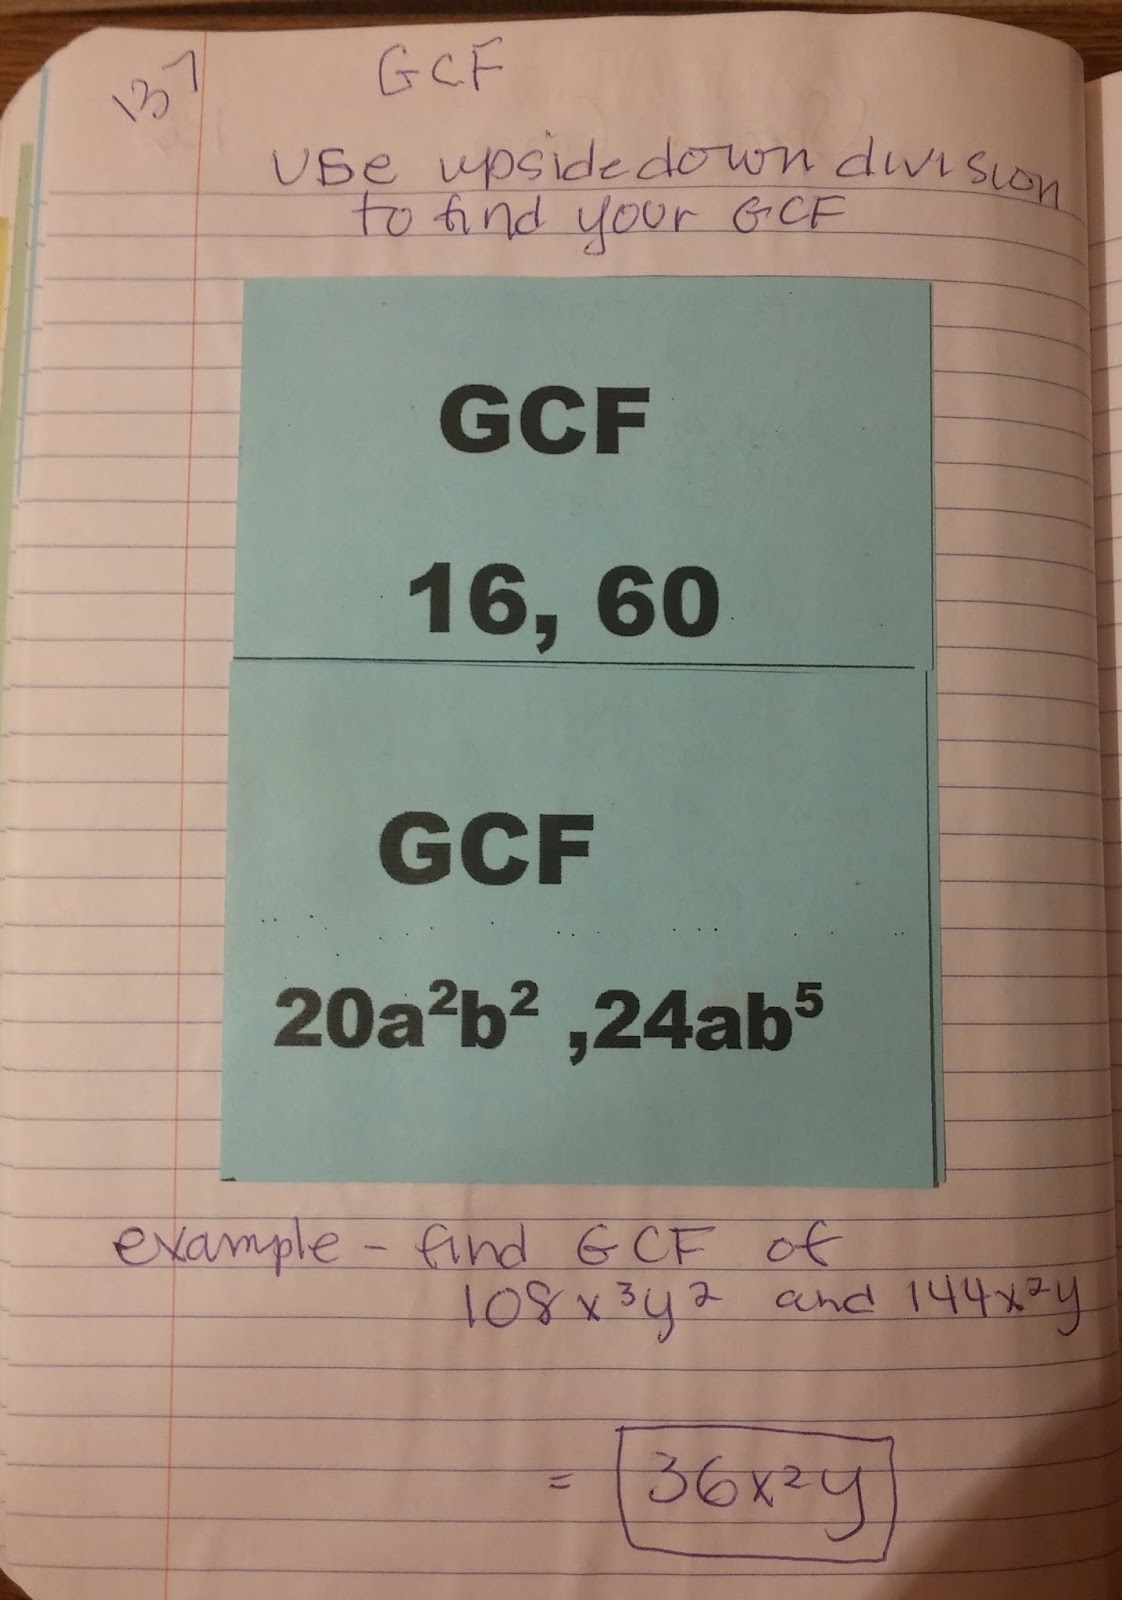 137
GCF
use upsidedown division
to find your GCF
GCF
16, 60
GCF
20a²b² ,24ab⁵
example - find GCF of
108x³y² and 144x²y
= 36x²y